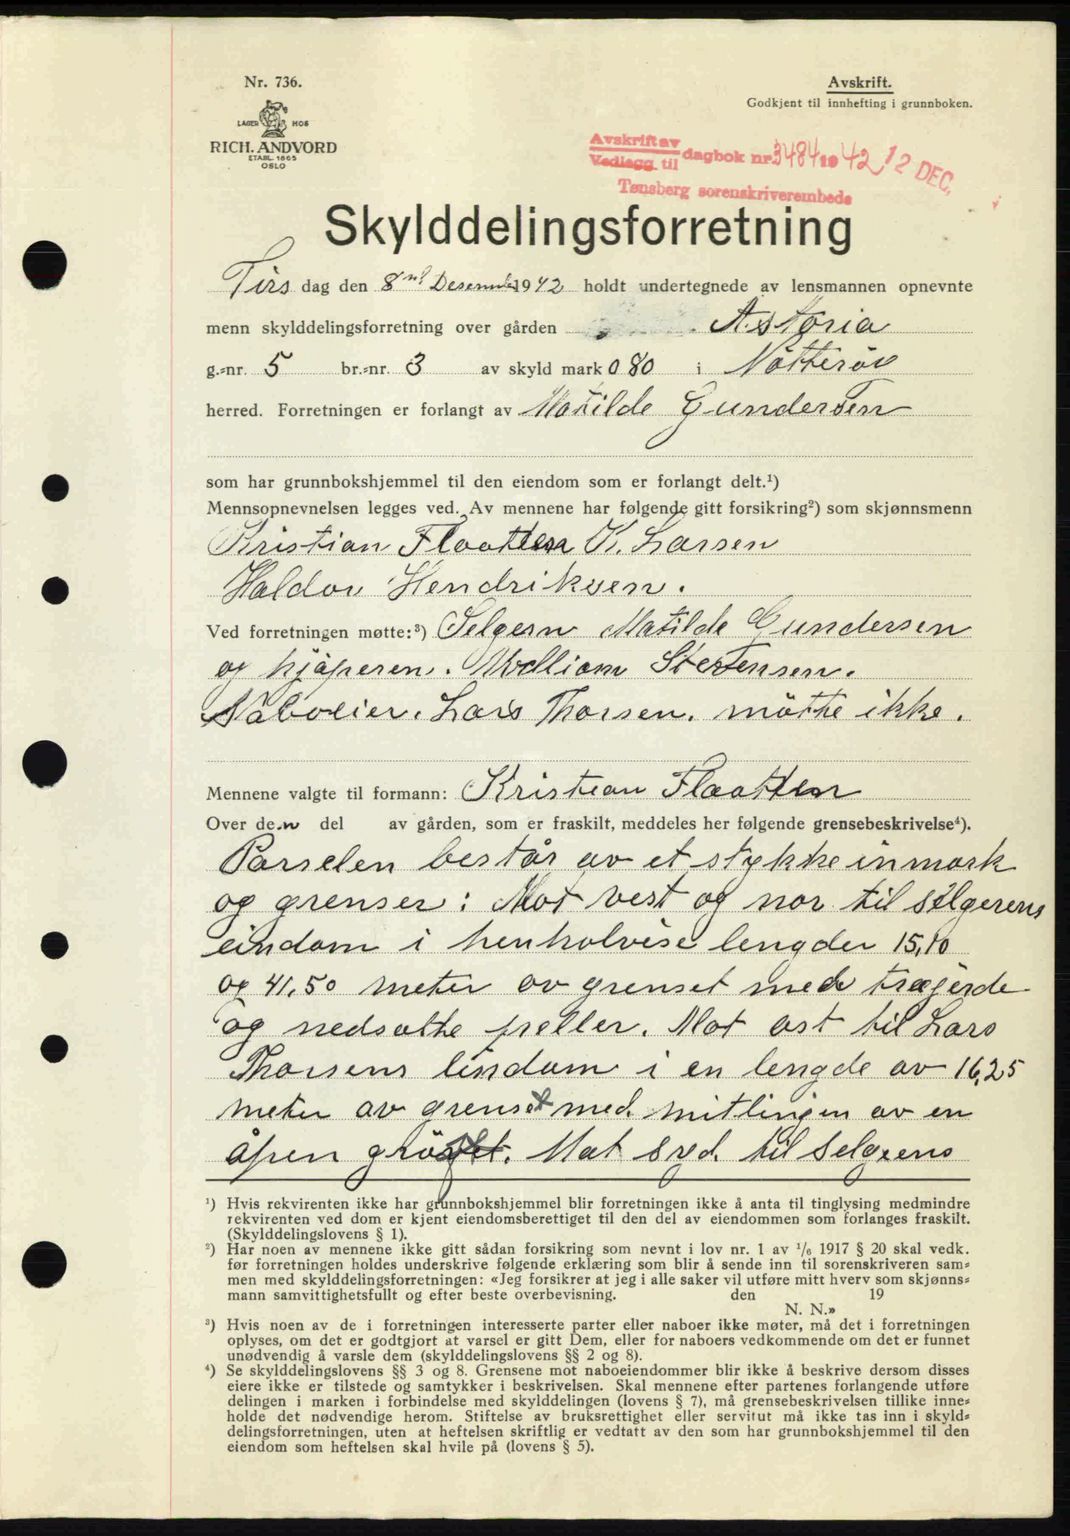 Nr. 736.
LAGER HOS
RICH. ANDVORD
ETABL. 1865
OSLO
Avskrift.
Godkjent til innhefting i grunnboken.
Avskrift av
Vedlegg til dagbok nr. 3484 1942 12 DEC.
Tønsberg sorenskriverembede
Skylddelingsforretning
Tirs dag den 8nd Desember 1942 holdt undertegnede av lensmannen opnevnte
menn skylddelingsforretning over gården Astoria
g.-nr. 5 br.-nr. 3 av skyld mark 0 80 i Nötteröy
herred. Forretningen er forlangt av Matilde Gundersen
som har grunnbokshjemmel til den eiendom som er forlangt delt.¹)
Mennsopnevnelsen legges ved. Av mennene har følgende gitt forsikring²) som skjønnsmenn
Kristian Flaatten K. Larsen
Haldor Hendriksen.
Ved forretningen møtte:³) Selgern Matilde Gundersen
og kjöperen. William Sternsen.
Naboeier. Lars Thorsen. mötte ikke.
Mennene valgte til formann: Kristian Flaatten
Over den del av gården, som er fraskilt, meddeles her følgende grensebeskrivelse⁴).
Parselen består av et stykke inmark
og grenser: Mot vest og nor til selgerens
eindom i henholvise lengder 15,10
og 41,50 meter av grenset med tragjerde
og nedsatte peller. Mot øst til Lars
Thorsens eindom i en lengde av 16,25
meter av grenset med mitlingen av en
åpen gröft. Mot syd til selgerens
¹) Hvis rekvirenten ikke har grunnbokshjemmel blir forretningen ikke å anta til tinglysing medmindre
rekvirenten ved dom er kjent eiendomsberettiget til den del av eiendommen som forlanges fraskilt.
(Skylddelingslovens § 1).
²) Har noen av mennene ikke gitt sådan forsikring som nevnt i lov nr. 1 av 1/6 1917 § 20 skal vedk.
før forretningen holdes underskrive følgende erklæring som blir å sende inn til sorenskriveren sam-
men med skylddelingsforretningen: «Jeg forsikrer at jeg i alle saker vil utføre mitt hverv som skjønns-
mann samvittighetsfullt og efter beste overbevisning. den 19
N. N.»
³) Hvis noen av de i forretningen interesserte parter eller naboer ikke møter, må det i forretningen
oplyses, om det er godtgjort at varsel er gitt Dem, eller for naboers vedkommende om det er funnet
unødvendig å varsle dem (skylddelingslovens §§ 2 og 8).
⁴) Se skylddelingslovens §§ 3 og 8. Grensene mot naboeiendommer blir ikke å beskrive dersom disses
eiere ikke er tilstede og samtykker i beskrivelsen. Skal mennene efter partenes forlangende utføre
delingen i marken i forbindelse med skylddelingen (lovens § 7), må grensebeskrivelsen tillike inne-
holde det nødvendige herom. Stiftelse av bruksrettighet eller servitut må ikke tas inn i skyld-
delingsforretningen, uten at heftelsen skriftlig er vedtatt av den som har grunnbokshjemmel til den
eiendom som heftelsen skal hvile på (lovens § 5).